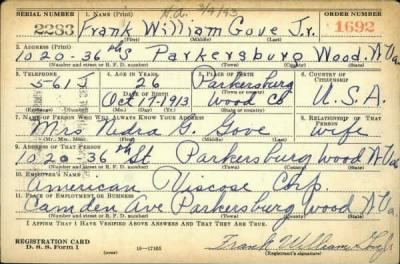 SERIAL NUMBER 1. NAME (Print) ORDER NUMBER
2283 Frank William Gove Jr. 1692
(First) (Middle) (Last)
2. ADDRESS (Print)
1020-36th St Parkersburg Wood W Va
(Number and street or R. F. D. number) (Town) (County) (State)
3. TELEPHONE 4. AGE IN YEARS 5. PLACE OF BIRTH 6. COUNTRY OF CITIZENSHIP
561J 26 Parkersburg
DATE OF BIRTH (Town or county)
Oct 17, 1913 Wood Co U.S.A.
(Exchange) (Number) (Mo.) (Day) (Yr.) (State or country)
7. NAME OF PERSON WHO WILL ALWAYS KNOW YOUR ADDRESS 8. RELATIONSHIP OF THAT PERSON
Mrs Nedra G. Gove wife
(Mr., Mrs., Miss) (First) (Middle) (Last)
9. ADDRESS OF THAT PERSON
1020-36th St Parkersburg Wood W Va
(Number and street or R. F. D. number) (Town) (County) (State)
10. EMPLOYER'S NAME
American Viscose Corp.
11. PLACE OF EMPLOYMENT OR BUSINESS
Camden Ave Parkersburg Wood W Va.
(Number and street or R. F. D. number) (Town) (County) (State)
I AFFIRM THAT I HAVE VERIFIED ABOVE ANSWERS AND THAT THEY ARE TRUE.
REGISTRATION CARD
D. S. S. Form 1 16-17105 Frank William Gove Jr
(Registrant's signature)